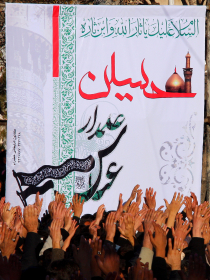 السلام علیک یا ثارالله وابن ثاره
حسین
علمدار
عباس